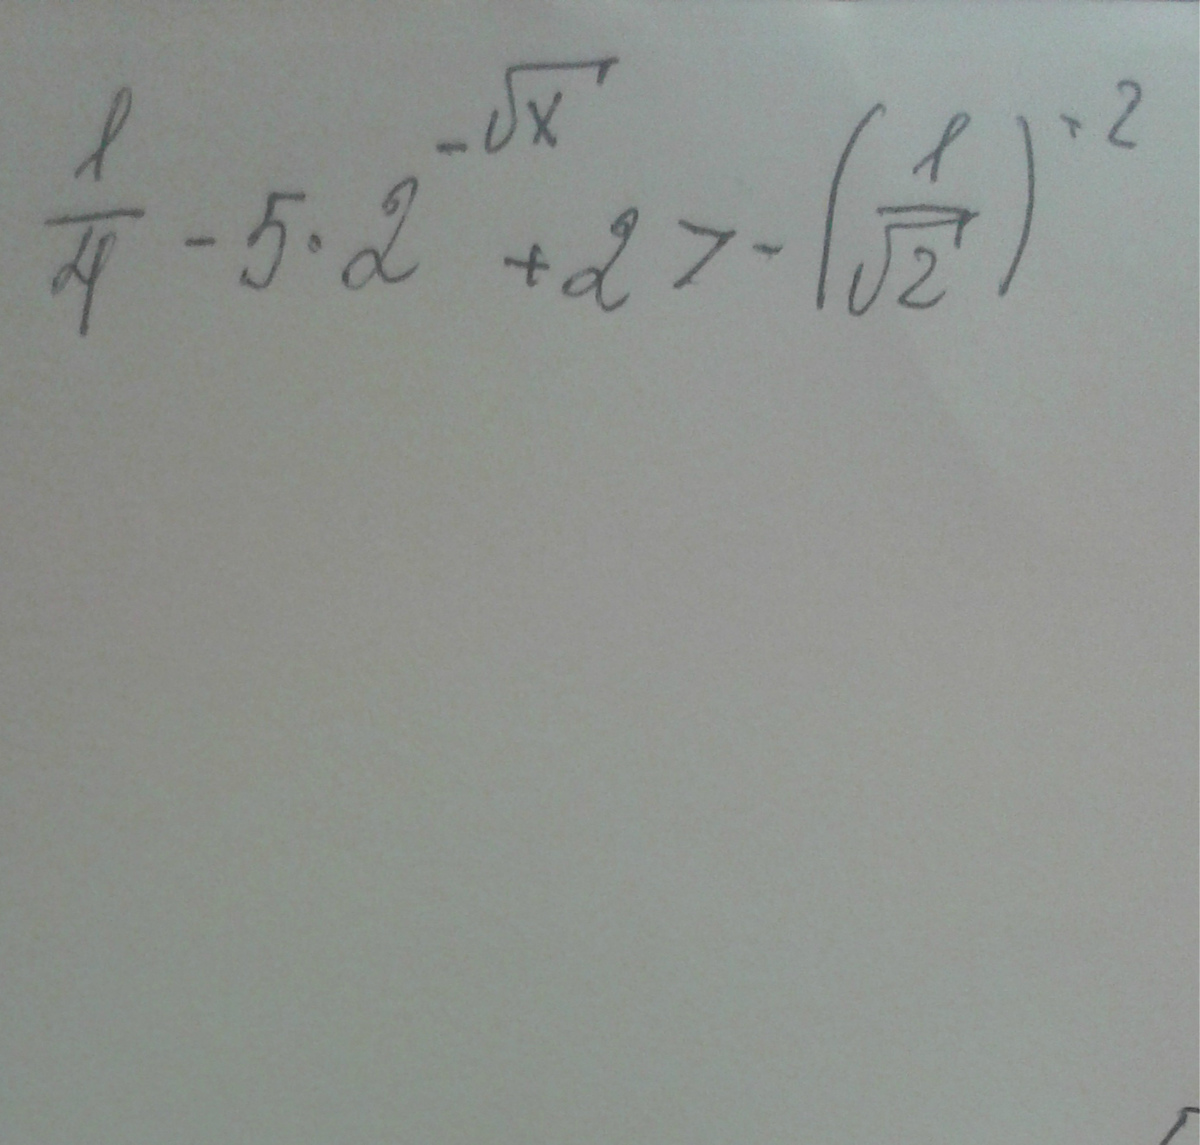 1/4 - 5 · 2^{-√x} + 2 > -(1/√2)^{-2}